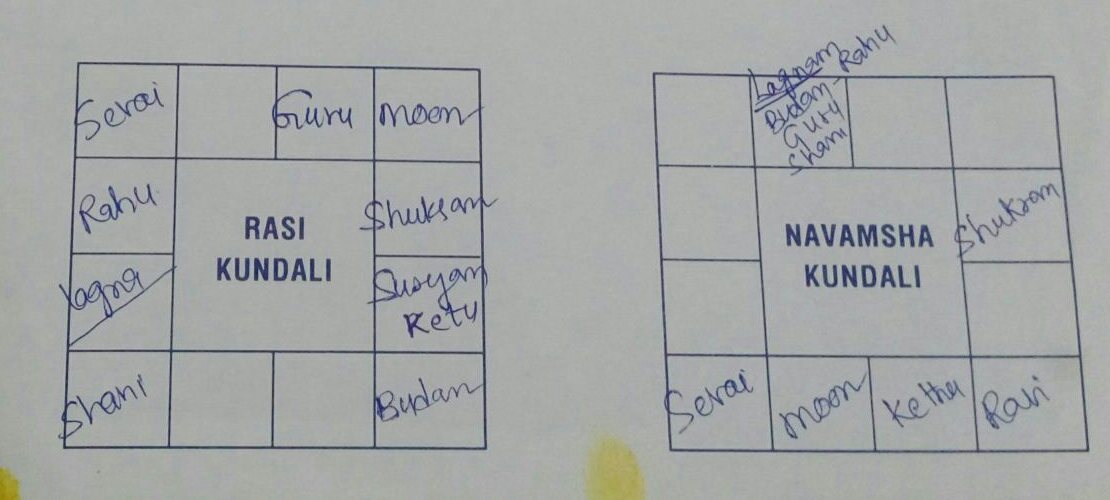 Serai
Guru
Moon
Rahu
RASI
KUNDALI
Shuksam
lagna
Suryam
Ketu
Shani
Budan
Lagnam
Rahu
Budan
Guru
Shani
NAVAMSHA
KUNDALI
Shukram
Serai
Moon
Kethu
Ravi